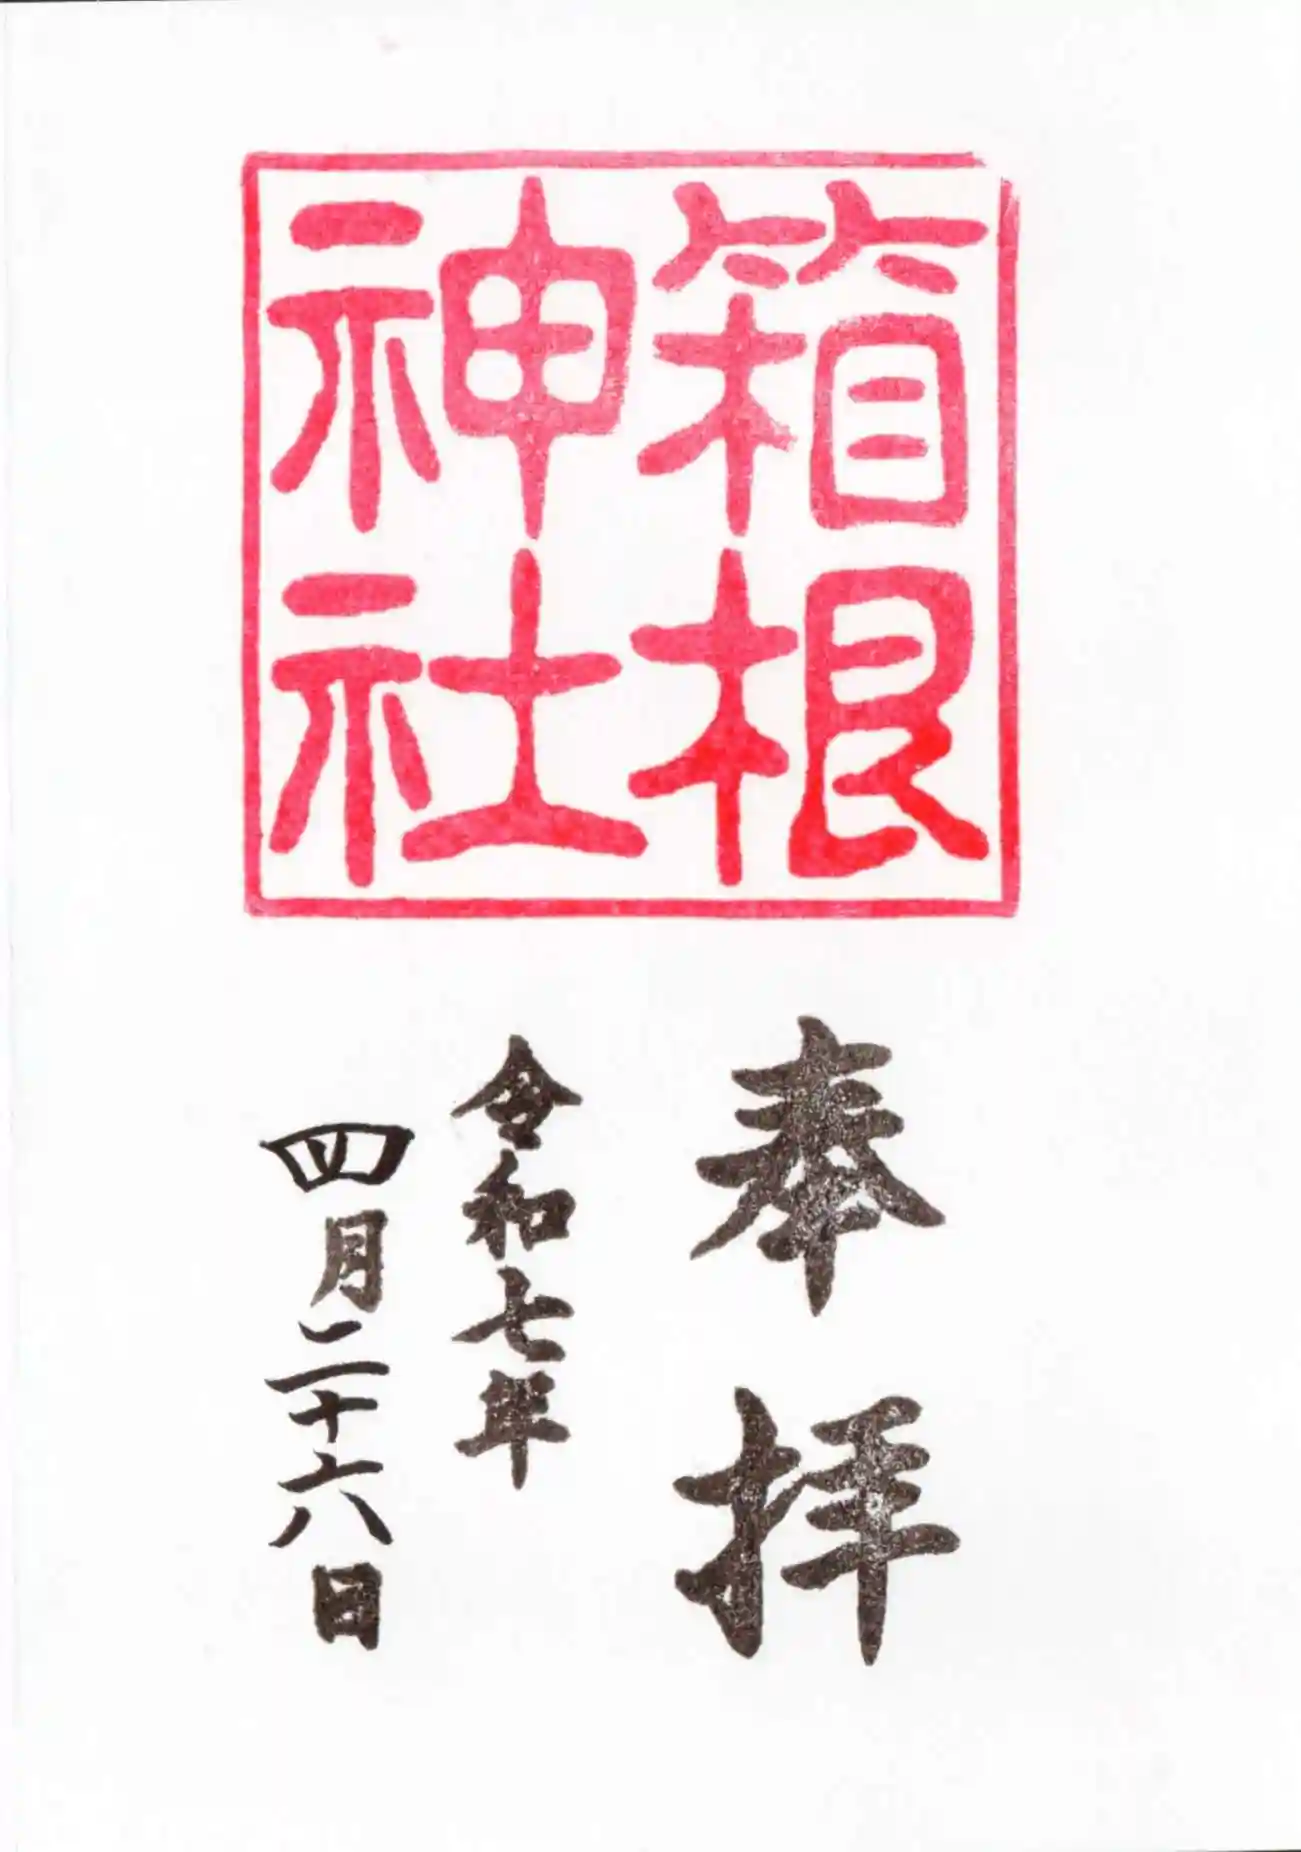 箱根
神社
奉拝
令和七年
四月二十六日